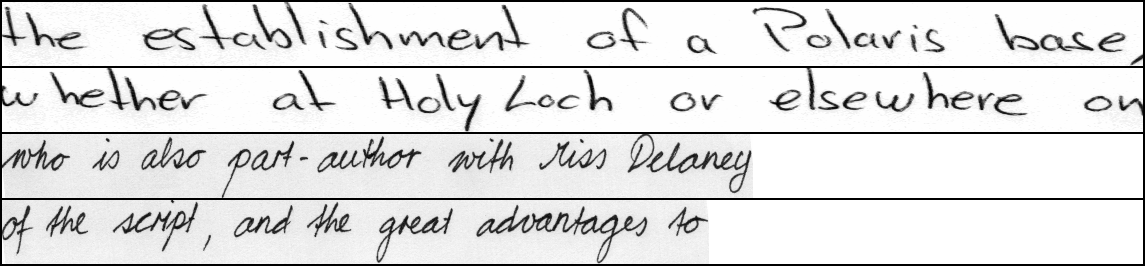 the establishment of a Polaris base,
whether at Holy Loch or elsewhere on
who is also part-author with Miss Delaney
of the script, and the great advantages to